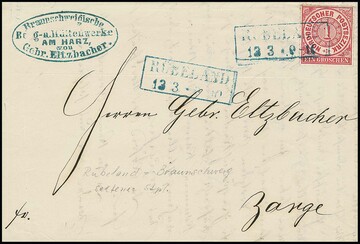 Braunschweigische
Berg-u.Hüttenwerke
AM HARZ,
von
Gebr. Eltzbacher.
RÜBELAND
12 3
RÜBELAND
12 3
NORDDEUTSCHER POSTBEZIRK
1
EIN GROSCHEN
Herren Gebr. Eltzbacher
Rübeland - Braunschweig
seltener Stpl.
fr.
Zorge.